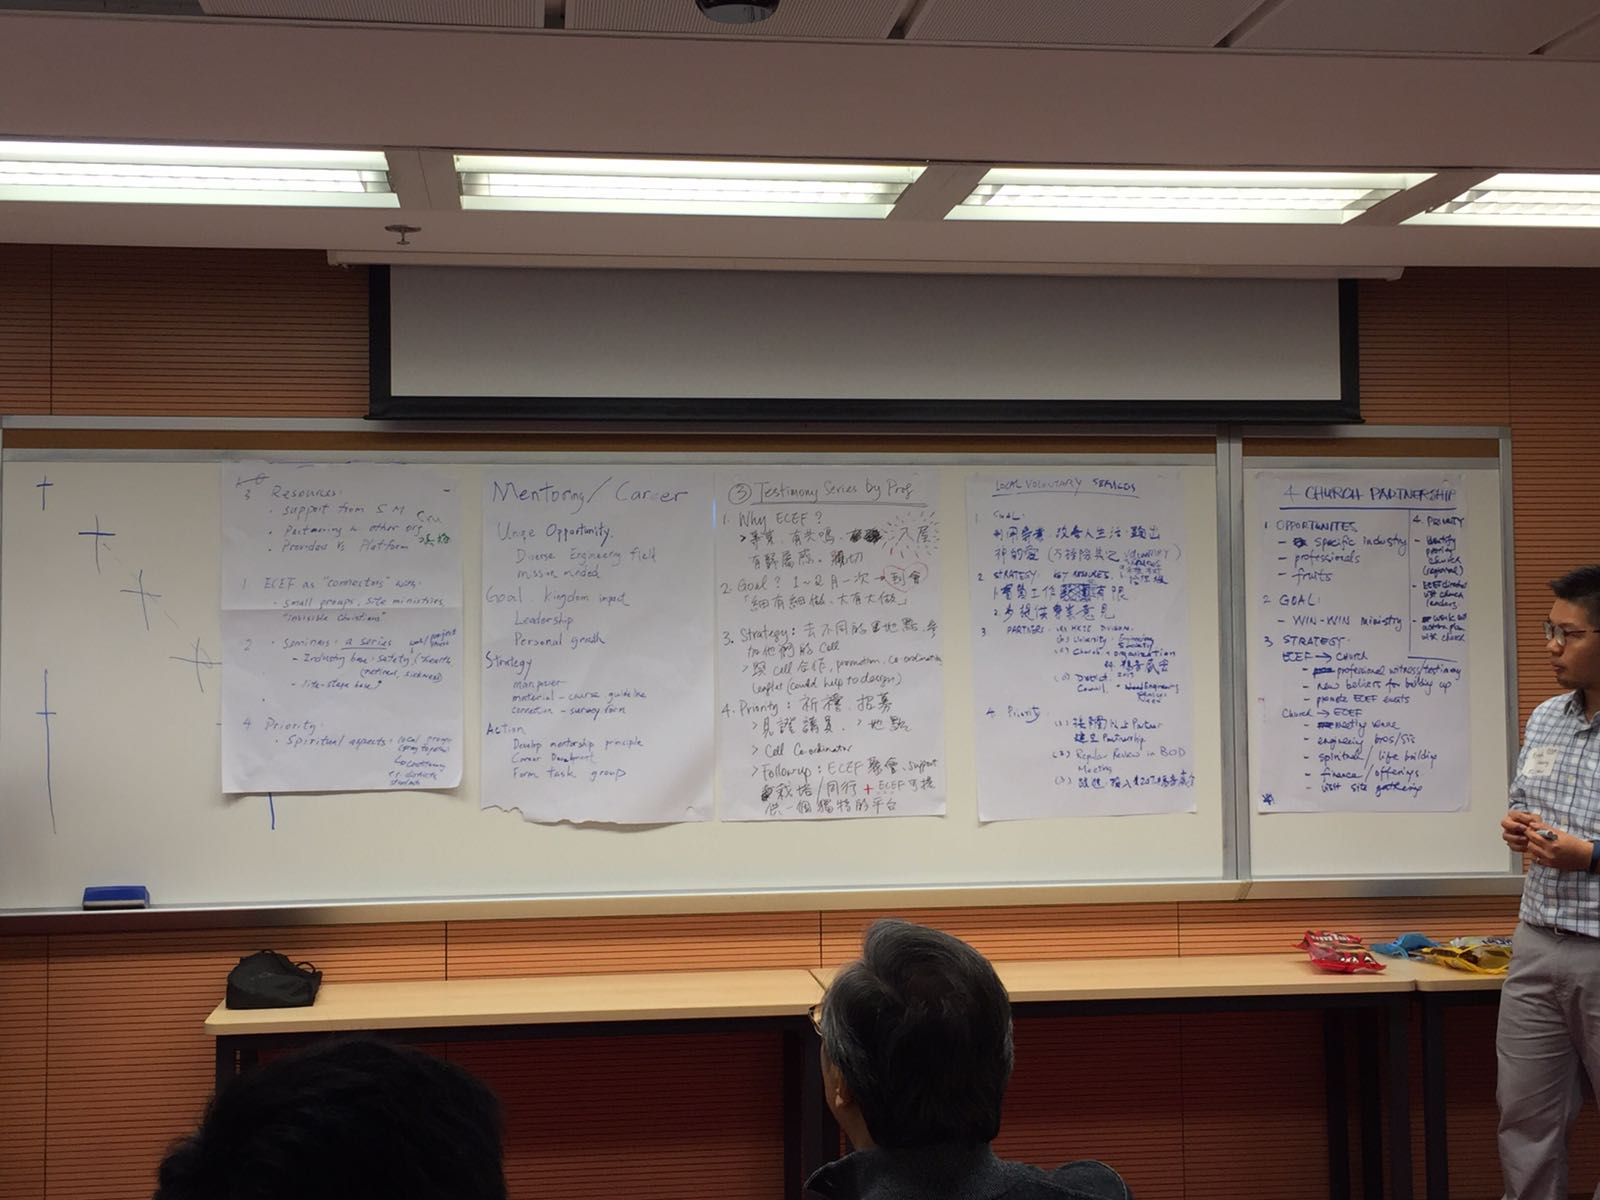 3 Resources:
• Support from S M
• Partnering to other org
• Provider vs Platform
1 ECEF as "connectors" wins:
• Small groups, site ministries,
"invisible Christians"
2 Seminars: a series
- Industry base: safety, health
(retired, sickness)
- life-stage base
4 Priority:
• Spiritual aspects: local prayer
(pray together)
Mentoring / Career
Uniqe Opportunity.
Diverse Engineering field
mission minded
Goal. kingdom impact
Leadership
Personal growth
Strategy
manpower
material - course guideline
connection - survey form
Action
Develop mentorship principle
Career Development
Form task group
③ Testimony Series by Prof
1. Why ECEF?
> 專業, 有共鳴,
2. Goal? 1~2月一次 → 到會
「細有細做, 大有大做」
3. Strategy: 去不同的地點, 參
加他們的 Cell
> 與 Cell 合作, promotion, co-ordination
leaflet (could help to design)
4. Priority: 祈禱, 招募
> 見證講員, > 地點
> Cell Co-ordinator
> Followup: ECEF 聚會, support
栽培/同行 + ECEF可提
供一個獨特的平台
LOCAL VOLUNTARY SERVICES
1. GOAL:
利用專業, 改善人生活, 帶出
神的愛
2 STRATEGY: KEY RESOURCES,
1. 實質工作 有限
2. 多提供專業意見
3 PARTNERS: (a) HKIE DIVISION.
(b) University: Engineering
Society
(c) Church + organization
(d) District
Council.
4. Priority (1)
建立 Partnership
(2) Regular Review in BOD
Meeting
(3)
4 CHURCH PARTNERSHIP
1 OPPORTUNITES
- Specific industry
- professionals
- fruits
2 GOAL:
- WIN-WIN ministry
3 STRATEGY:
ECEF → CHURCH
- professional witness/testimony
- new believers for building up
- promote ECEF events
Church → ECEF
- meeting venue
- engineering bros/sis
- spiritual / life building
- finance / offerings
- visit site gatherings
4. PRIORITY
- identify
church
(regional)
- ECEF director
visit church
leaders.
- work out
action plan
with church